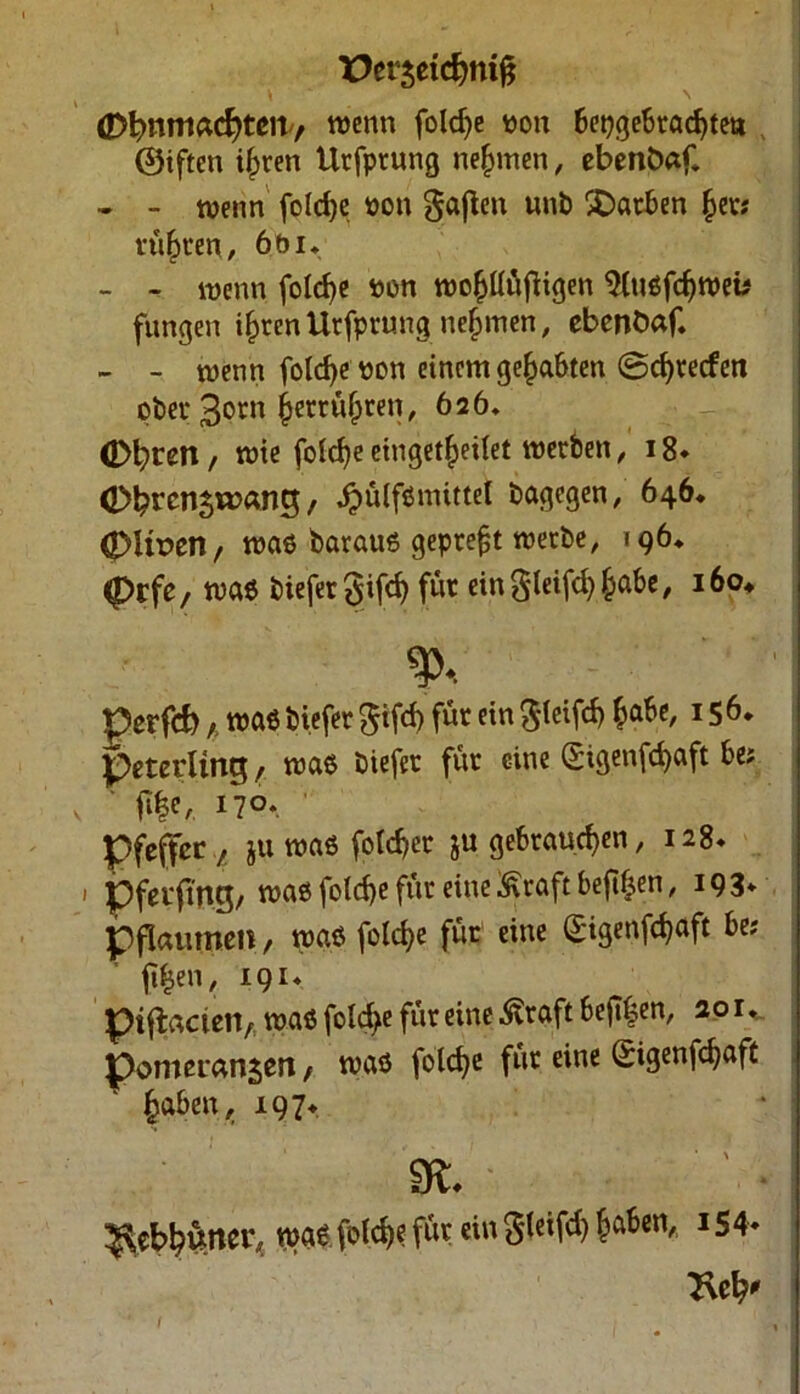 Verzeichniß
Ohnmachten, wenn solche von beygebrachten
Giften ihren Ursprung nehmen, ebendas.
- - wenn solche von Fasten und Darben her-
rühren, 601.
- - wenn solche von wohllüstigen Ausschwei-
fungen ihren Ursprung nehmen, ebendas.
- - wenn solche von einem gehabten Schrecken
oder Zorn herrühren, 626.
Ohren, wie solche eingetheilet werden, 18.
Ohrenzwang, Hülfsmittel dagegen, 646.
Oliven, was daraus gepreßt werde, 196.
Orfe, was dieser Fisch für ein Fleisch habe, 160.
P.
Persch, was dieser Fisch für ein Fleisch habe, 156.
Peterling, was dieser für eine Eigenschaft be-
sitze, 170.
Pfeffer, zu was solcher zu gebrauchen, 128.
Pfersing, was solche für eine Kraft besitzen, 193.
Pflaumen, was solche für eine Eigenschaft be-
sitzen, 191.
Pistacien, was solche für eine Kraft besitzen, 201.
Pomeranzen, was solche für eine Eigenschaft
haben, 197.
R.
Rebhüner, was solche für ein Fleisch haben, 154.
Reh-